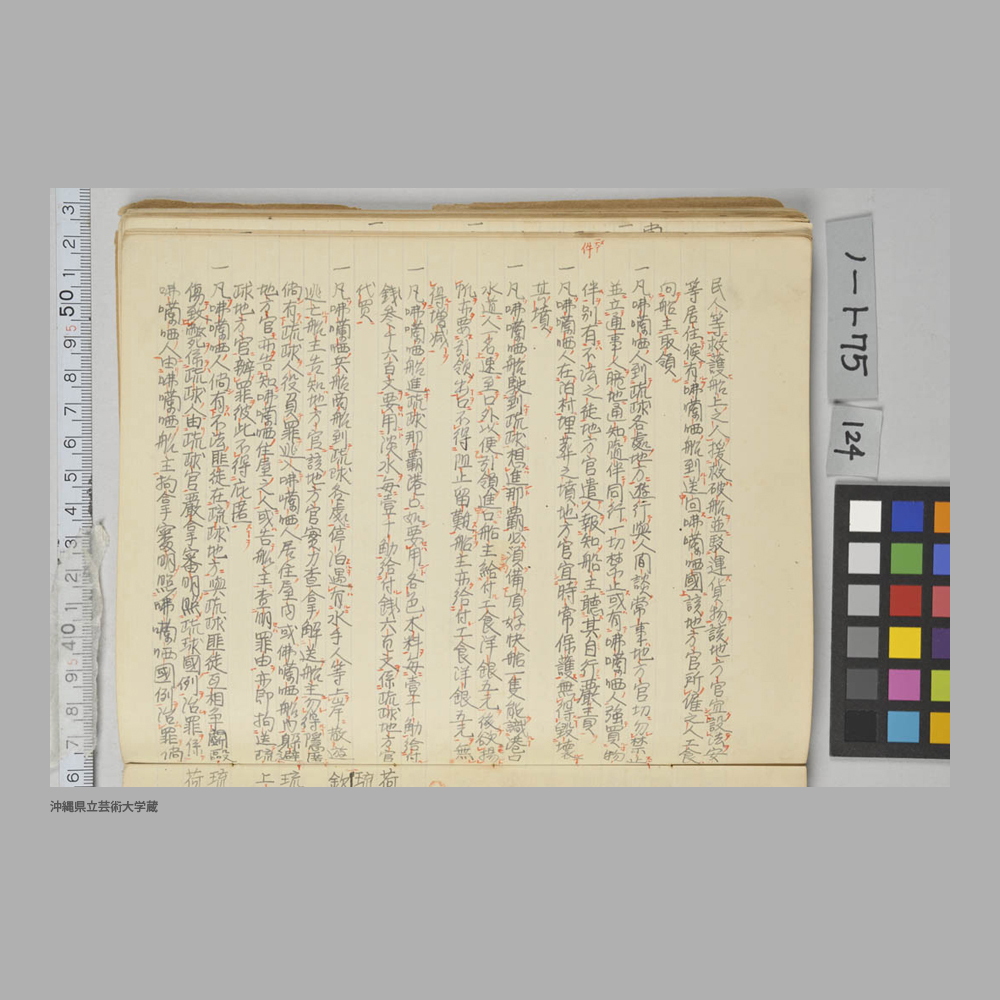 民人等救護船上之人援救破船並駁運貨物該地方官宜設法安
等居住候有咈嘣哂船到送回咈嘣哂國該地方官所催之工長
向船主取領
一凡咈嘣哂人到琉球各處地方遊行與人間談常事地方官切勿禁止
並立通事人跪地通知隨伴同行一切禁止或有咈嘣哂人強買物
件別有不法之徒地方官遣人報知船主聽其自行嚴責
一凡咈嘣哂人在泊村埋葬之墳地方官宜時常保護無得毀壞
其墳
一凡咈嘣哂船駛到琉球想進那覇必須備頂好快船一隻能識港
水道人名速至口外以便引領進口船主給付工食洋銀五元後欲揚
帆要引領出口不得阻止留難船主亦給付工食洋銀五元無
得增減
一凡咈嘣哂船進琉球那覇港口如要用各色木料每壹千觔給
錢叁千六百文要用淡水每壹千觔給付錢六百文係琉球地方官
代買
一凡咈嘣哂兵船商船到琉球各處停泊遇有水手人等上岸散遊
逃亡船主告知地方官該地方官實力查拿解送船主勿得隱匿
倘有琉球人役負罪逃入咈嘣哂人居住屋內或咈嘣哂船內躲避
地方官亦告知咈嘣哂住屋之人或告船主查明罪由亦即拘送琉
球地方官辦罪彼此不得庇匿
一凡咈嘣哂人倘有不法匪徒在琉球地方與琉球匪徒互相爭鬪毆
傷致斃列係琉球人由琉球官嚴拿審明照琉球國例治罪係
咈嘣哂人由咈嘣哂船主拘拿審明照咈嘣哂國例治罪倘
件
ノート75
124
沖縄県立芸術大学蔵